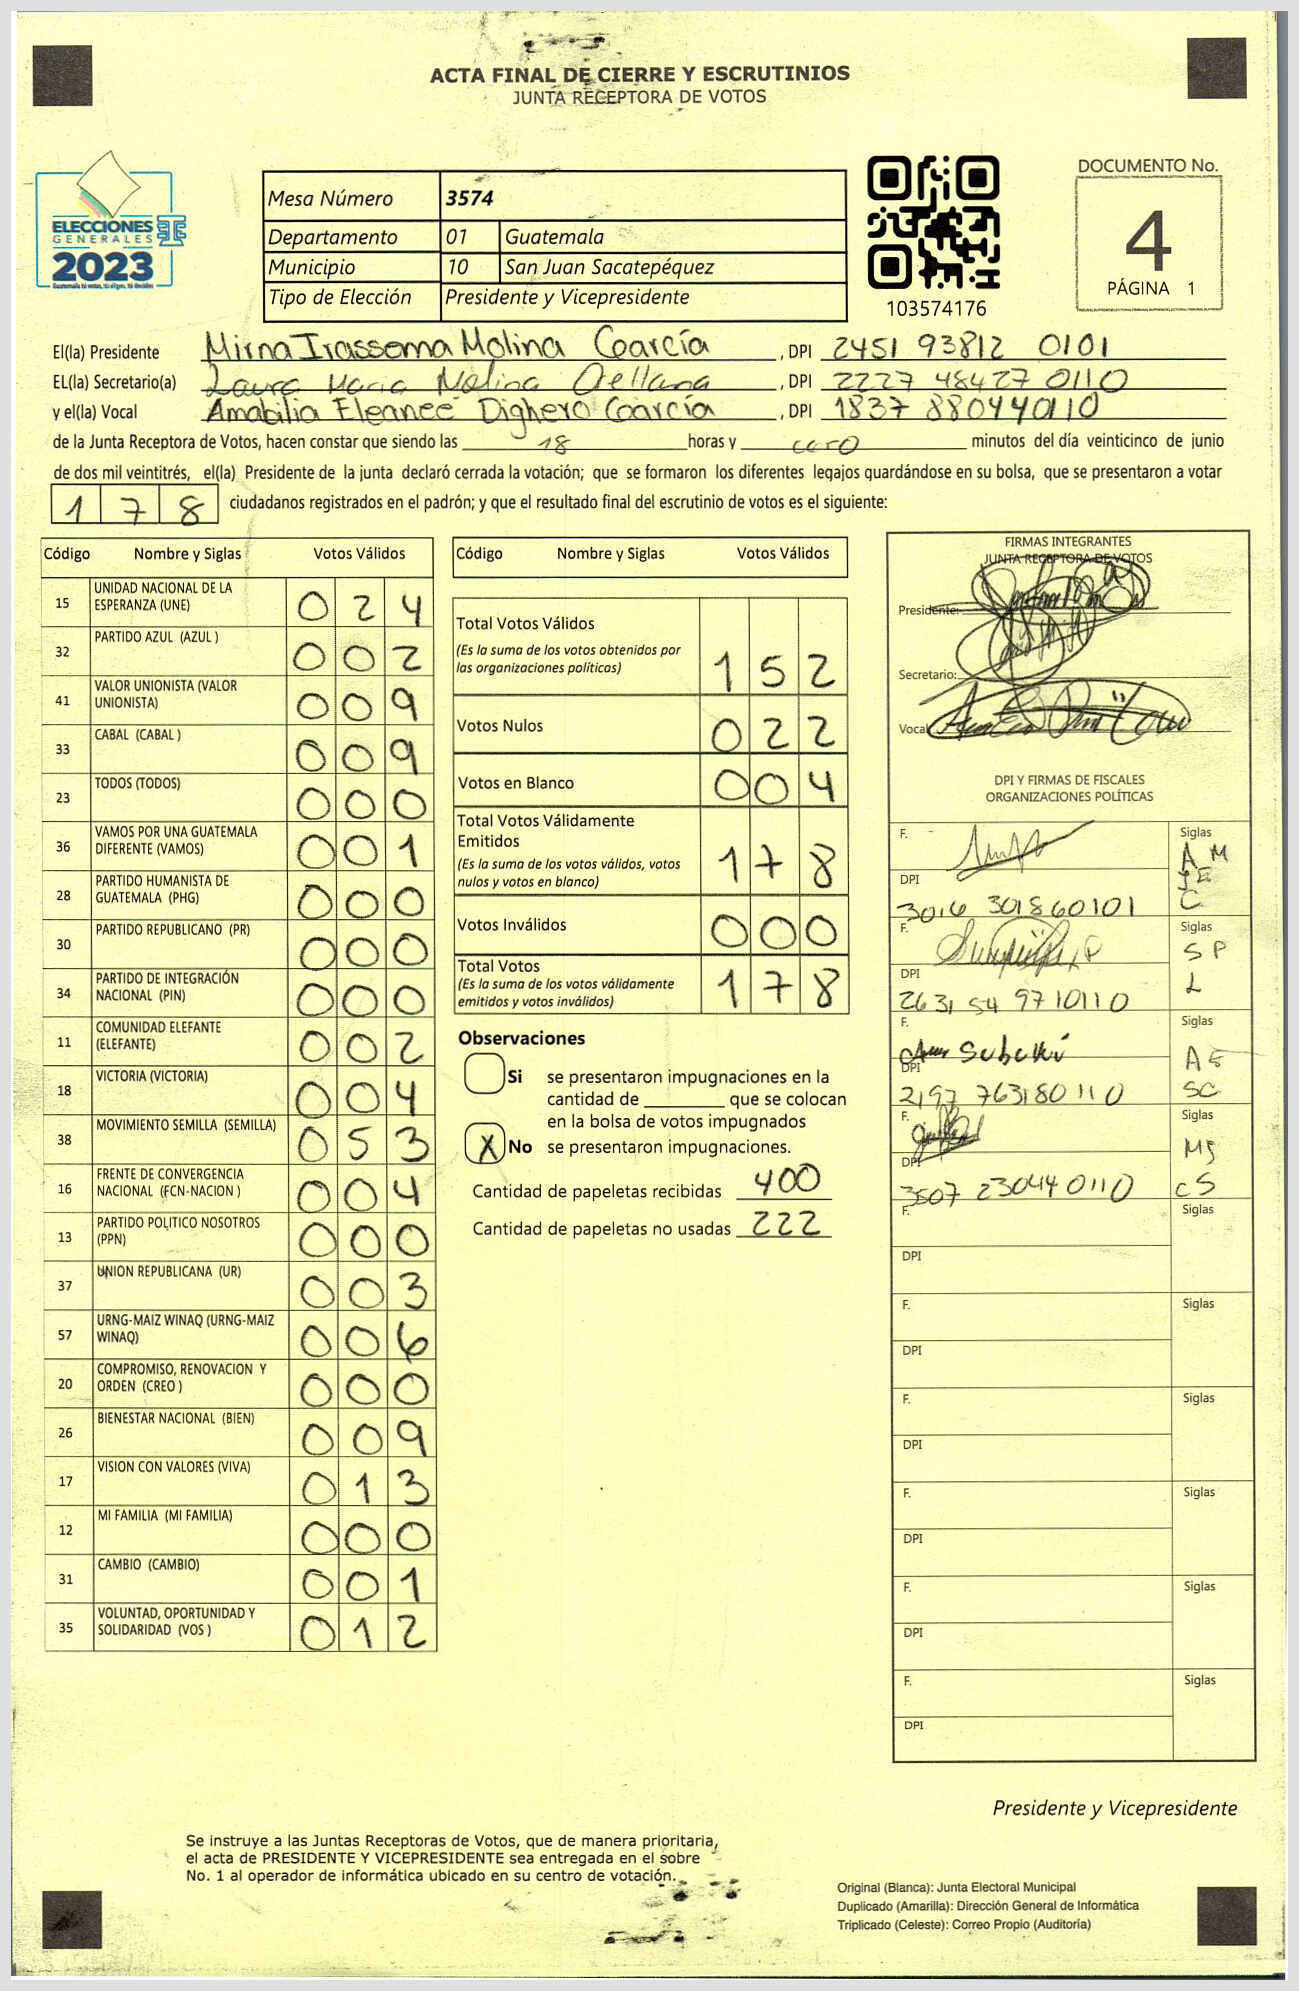 ACTA FINAL DE CIERRE Y ESCRUTINIOS
JUNTA RECEPTORA DE VOTOS
ELECCIONES
GENERALES
2023
Guatemala tú votas, tú eliges, tú decides
Mesa Número 3574
Departamento 01 Guatemala
Municipio 10 San Juan Sacatepéquez
Tipo de Elección Presidente y Vicepresidente
103574176
DOCUMENTO No.
4
PÁGINA 1
El(la) Presidente Mirna Irassema Molina García , DPI 2451 93812 0101
EL(la) Secretario(a) Laura Maria Molina Orellana , DPI 2227 48427 0110
y el(la) Vocal Amabilia Eleanee Dighero García , DPI 1837 88044 0110
de la Junta Receptora de Votos, hacen constar que siendo las 18 horas y cero minutos del día veinticinco de junio
de dos mil veintitrés, el(la) Presidente de la junta declaró cerrada la votación; que se formaron los diferentes legajos guardándose en su bolsa, que se presentaron a votar
178 ciudadanos registrados en el padrón; y que el resultado final del escrutinio de votos es el siguiente:
Código Nombre y Siglas Votos Válidos
15 UNIDAD NACIONAL DE LA ESPERANZA (UNE) 024
32 PARTIDO AZUL (AZUL ) 002
41 VALOR UNIONISTA (VALOR UNIONISTA) 009
33 CABAL (CABAL ) 009
23 TODOS (TODOS) 000
36 VAMOS POR UNA GUATEMALA DIFERENTE (VAMOS) 001
28 PARTIDO HUMANISTA DE GUATEMALA (PHG) 000
30 PARTIDO REPUBLICANO (PR) 000
34 PARTIDO DE INTEGRACIÓN NACIONAL (PIN) 000
11 COMUNIDAD ELEFANTE (ELEFANTE) 002
18 VICTORIA (VICTORIA) 004
38 MOVIMIENTO SEMILLA (SEMILLA) 053
16 FRENTE DE CONVERGENCIA NACIONAL (FCN-NACION ) 004
13 PARTIDO POLITICO NOSOTROS (PPN) 000
37 UNION REPUBLICANA (UR) 003
57 URNG-MAIZ WINAQ (URNG-MAIZ WINAQ) 006
20 COMPROMISO, RENOVACION Y ORDEN (CREO ) 000
26 BIENESTAR NACIONAL (BIEN) 009
17 VISION CON VALORES (VIVA) 013
12 MI FAMILIA (MI FAMILIA) 000
31 CAMBIO (CAMBIO) 001
35 VOLUNTAD, OPORTUNIDAD Y SOLIDARIDAD (VOS ) 012
Código Nombre y Siglas Votos Válidos
Total Votos Válidos
(Es la suma de los votos obtenidos por
las organizaciones políticas) 152
Votos Nulos 022
Votos en Blanco 004
Total Votos Válidamente
Emitidos
(Es la suma de los votos válidos, votos
nulos y votos en blanco) 178
Votos Inválidos 000
Total Votos
(Es la suma de los votos válidamente
emitidos y votos inválidos) 178
Observaciones
Si se presentaron impugnaciones en la
cantidad de ________ que se colocan
en la bolsa de votos impugnados
X No se presentaron impugnaciones.
Cantidad de papeletas recibidas 400
Cantidad de papeletas no usadas 222
FIRMAS INTEGRANTES
JUNTA RECEPTORA DE VOTOS
Presidente:
Secretario:
Vocal
DPI Y FIRMAS DE FISCALES
ORGANIZACIONES POLÍTICAS
F. Siglas
A M
I E
C
DPI
3016 30186 0101
F. Siglas
S P
L
DPI
2631 54 971 0110
F. Siglas
A E
SC
DPI
2197 76318 0110
F. Siglas
MS
CS
DPI
3507 23044 0110
F. Siglas
DPI
F. Siglas
DPI
F. Siglas
DPI
F. Siglas
DPI
F. Siglas
DPI
F. Siglas
DPI
Presidente y Vicepresidente
Se instruye a las Juntas Receptoras de Votos, que de manera prioritaria,
el acta de PRESIDENTE Y VICEPRESIDENTE sea entregada en el sobre
No. 1 al operador de informática ubicado en su centro de votación.
Original (Blanca): Junta Electoral Municipal
Duplicado (Amarilla): Dirección General de Informática
Triplicado (Celeste): Correo Propio (Auditoría)